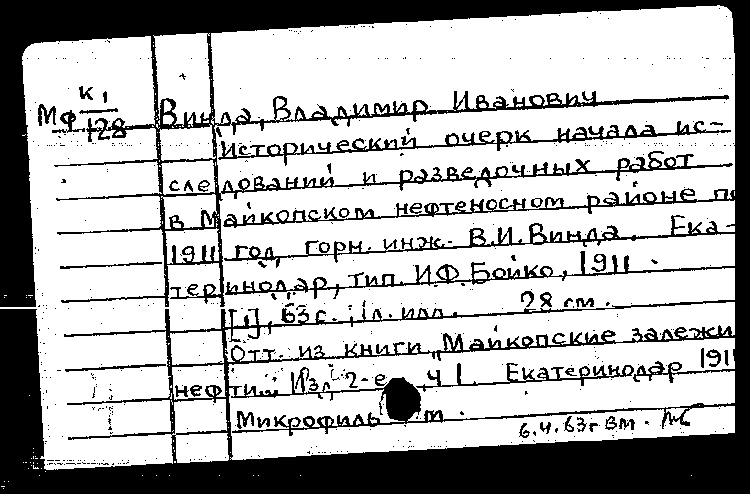 К 1
Мф 128 Винда, Владимир Иванович
Исторический очерк начала ис-
следований и разведочных работ
в Майкопском нефтеносном районе по
1911 год, горн. инж. В.И. Винда. Ека-
теринодар, тип. И.Ф. Бойко, 1911.
[1], 63 с.; 1 л. илл. 28 см.
Отт. из книги „Майкопские залежи
нефти... Изд. 2-е, ч 1. Екатеринодар 1911
Микрофильм.
6.4.63 г